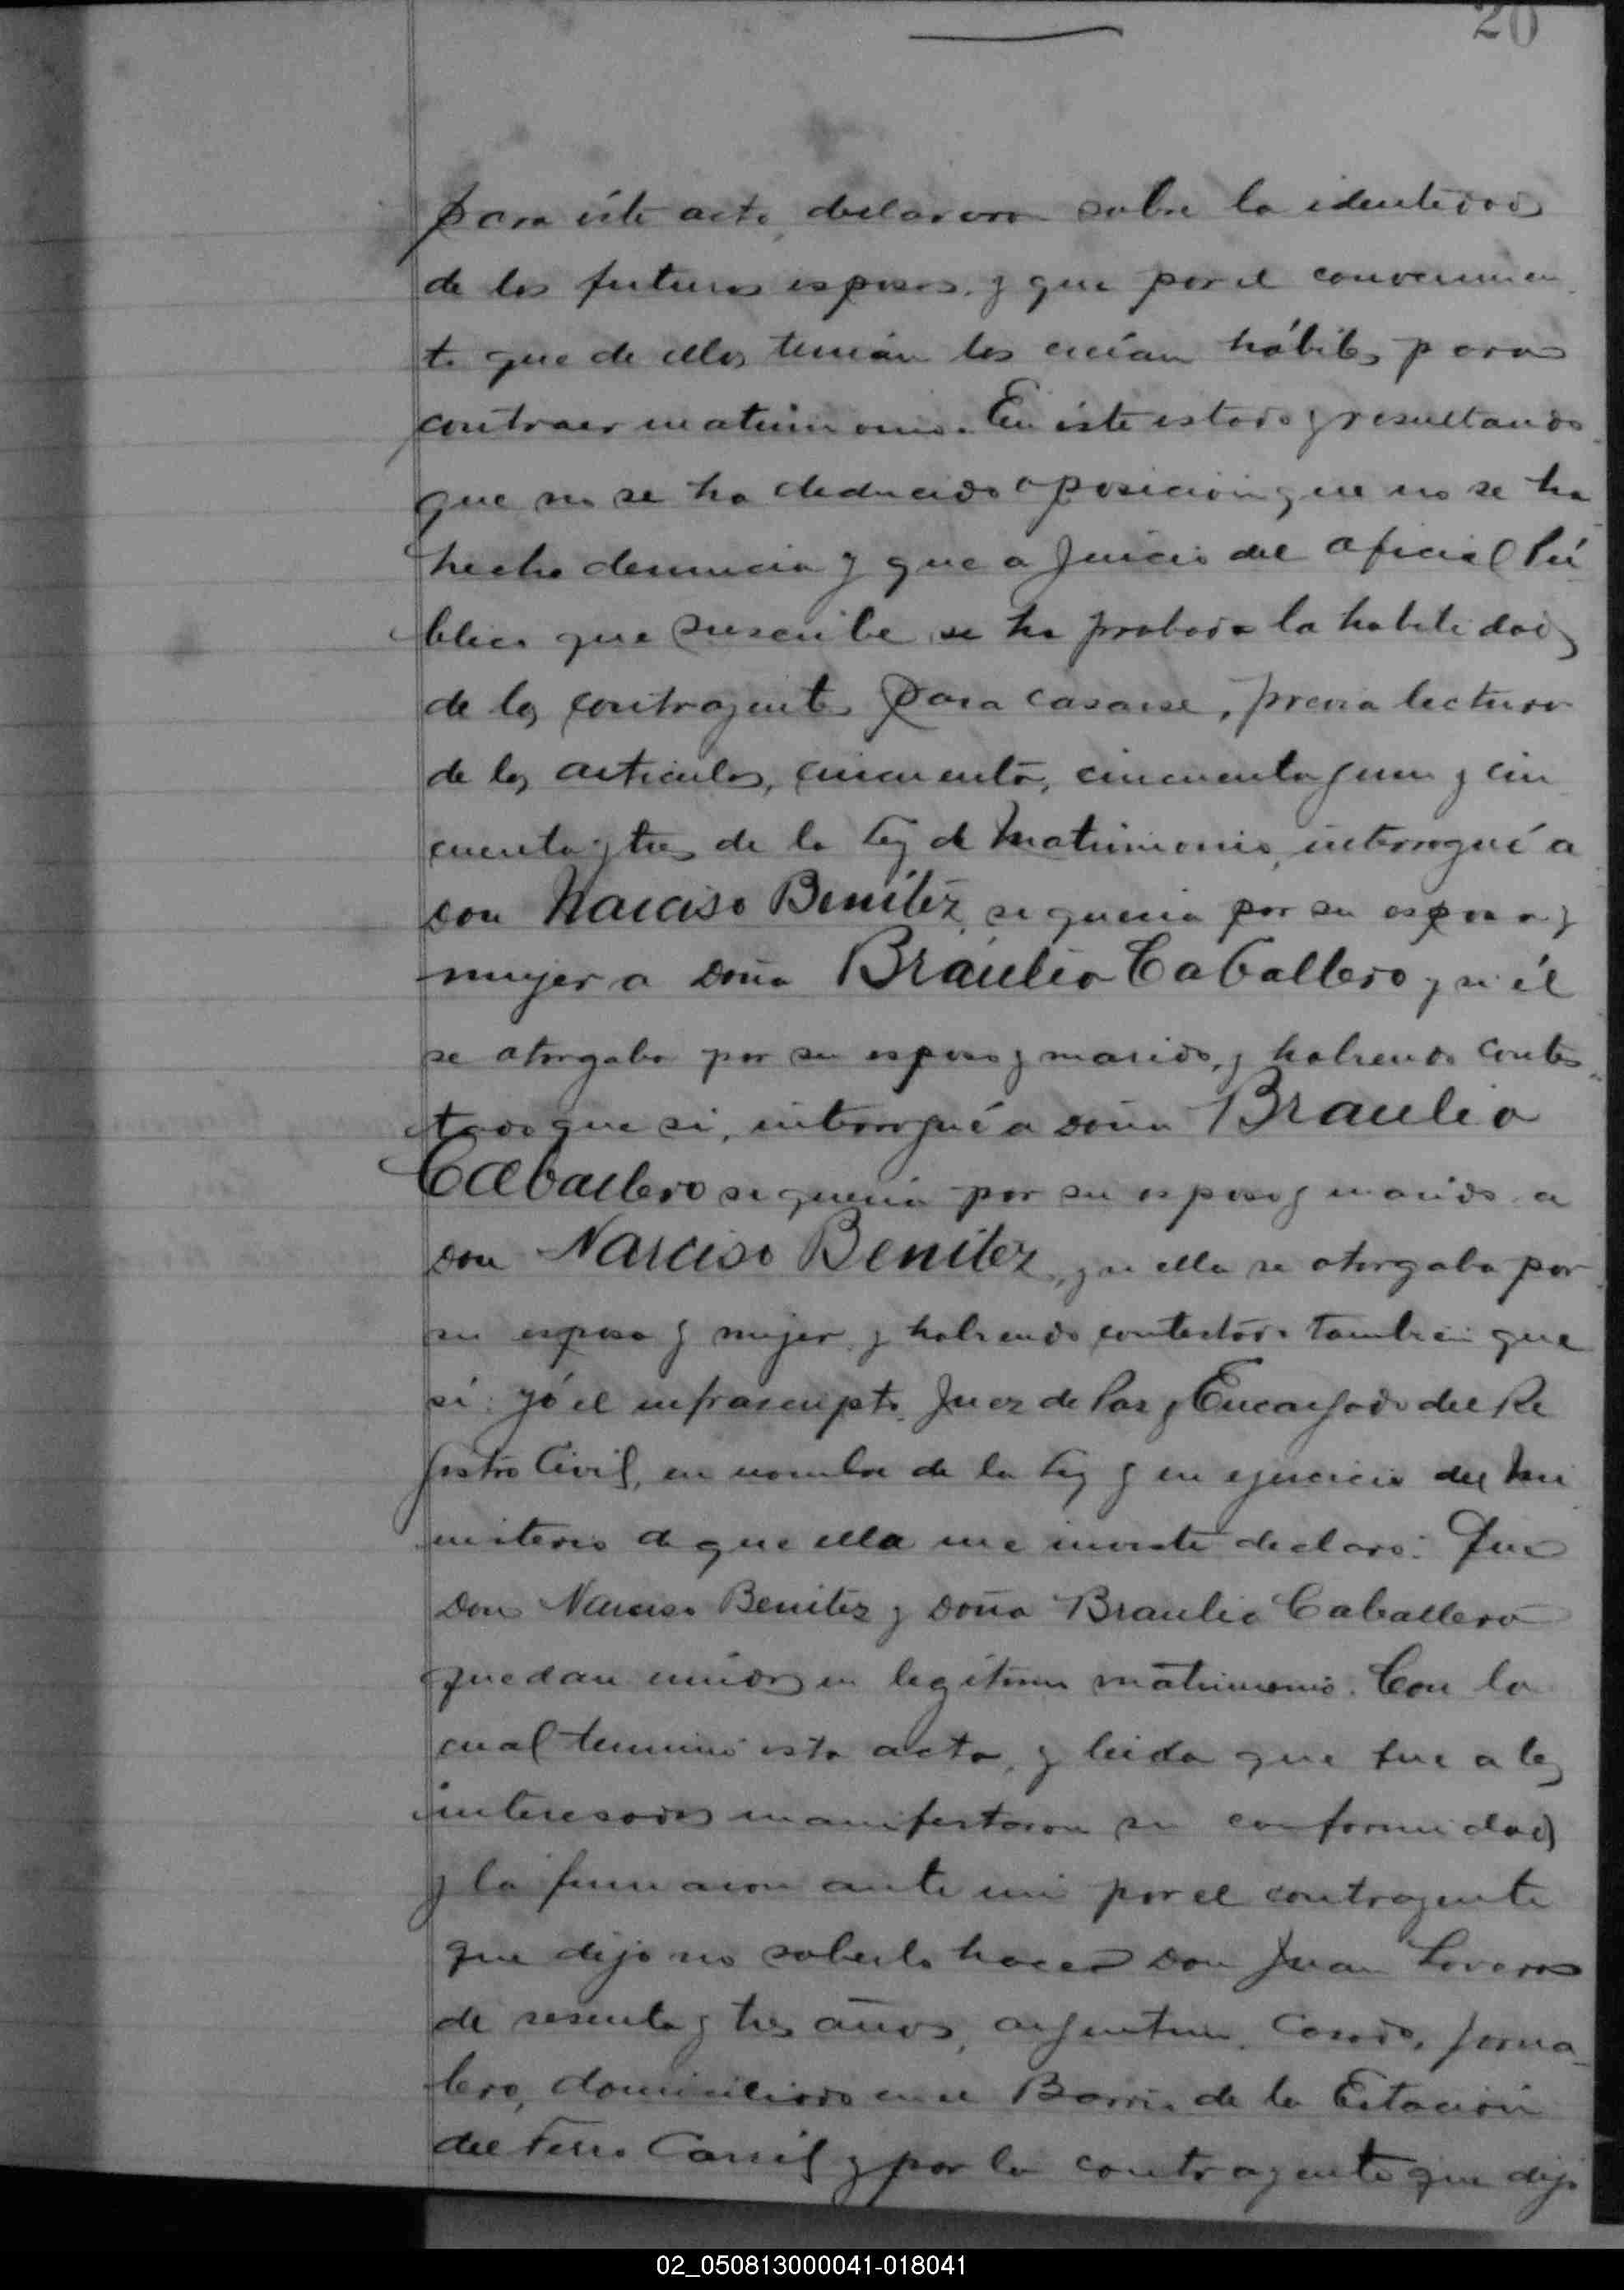 20
para éste acto, declararon sobre la identidad
de los futuros esposos, y que por el convenimien
to que de ellos tenían los creían hábiles para
contraer matrimonio. En éste estado y resultando
que no se ha deducido oposición, que no se ha
hecho denuncia y que a juicio del oficial Pú
blico que suscribe, se ha probado la habilidad
de los contrayentes para casarse, previa lectura
de los artículos, cincuenta, cincuenta y uno y cin
cuenta y tres de la Ley de Matrimonio, interrogué a
don Narciso Benítez, si quería por su esposa y
mujer a doña Bráulia Caballero y si él
se otorgaba por su esposo y marido, y habiendo contes
tado que si, interrogué a doña Braulia
Caballero si quería por su esposo y marido a
don Narciso Benítez, y si ella se otorgaba por
su esposa y mujer, y habiendo contestado también que
sí: yó el infrascripto Juez de Paz y Encargado del Re
gistro Civil, en nombre de la Ley y en ejercicio del Mi
nisterio de que ella me inviste declaro: Que
don Narciso Benítez y doña Braulia Caballero
quedan unidos en legítimo matrimonio. Con lo
cual terminó esta acta, y leida que fue a los
interesados manifestaron su conformidad
y la firmaron ante mi por el contrayente
que dijo no saberlo hacer don Juan
de sesenta y tres años, argentino, casado, jorna
lero, domiciliado en el Barrio de la Estación
del Ferro Carril y por la contrayente que dijo
02_050813000041-018041